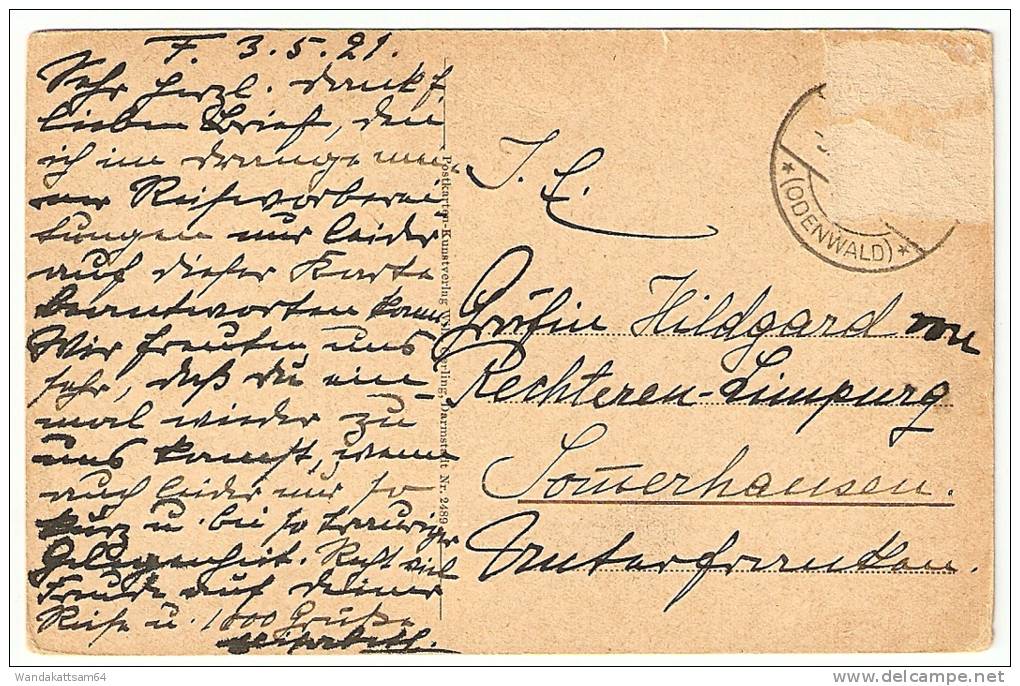 F. 3.5.21.
Sehr herzl. Dank f.
lieben Brief, den
ich im Drange mei-
ner Reisevorberei
tungen nur leider
auf dieser Karte
beantworten kann.
Wir freuten uns
sehr, daß du ein-
mal wieder zu
uns kamst, wenn
auch leider nur so
kurz u. bei so trauriger
Gelegenheit. Recht viel
Freude auf deiner
Reise u. 1000 Grüße
Postkarten-Kunstverlag Darmstadt Nr. 2489
(ODENWALD)
I. E.
Gräfin Hildgard von
Rechteren-Limpurg
Som̅erhausen.
Unterfranken.
Wandakattsam64
delcampe.net